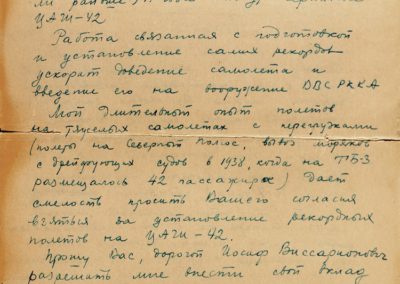 ЦАГИ-42
Работа связанная с подготовкой
и установление самих рекордов
ускорят доведение самолета и
введение его на вооружение ВВС РККА
Мой длительный опыт полетов
на тяжелых самолетах с перегрузками
(полеты на Северный Полюс, вывоз моряков
с дрейфующих судов в 1938, когда на ТБ3
размещалось 42 пассажира) дает
смелость просить Вашего согласия
взяться за установление рекордных
полетов на ЦАГИ-42.
Прошу Вас, дорогой Иосиф Виссарионович
разрешить мне внести свой вклад